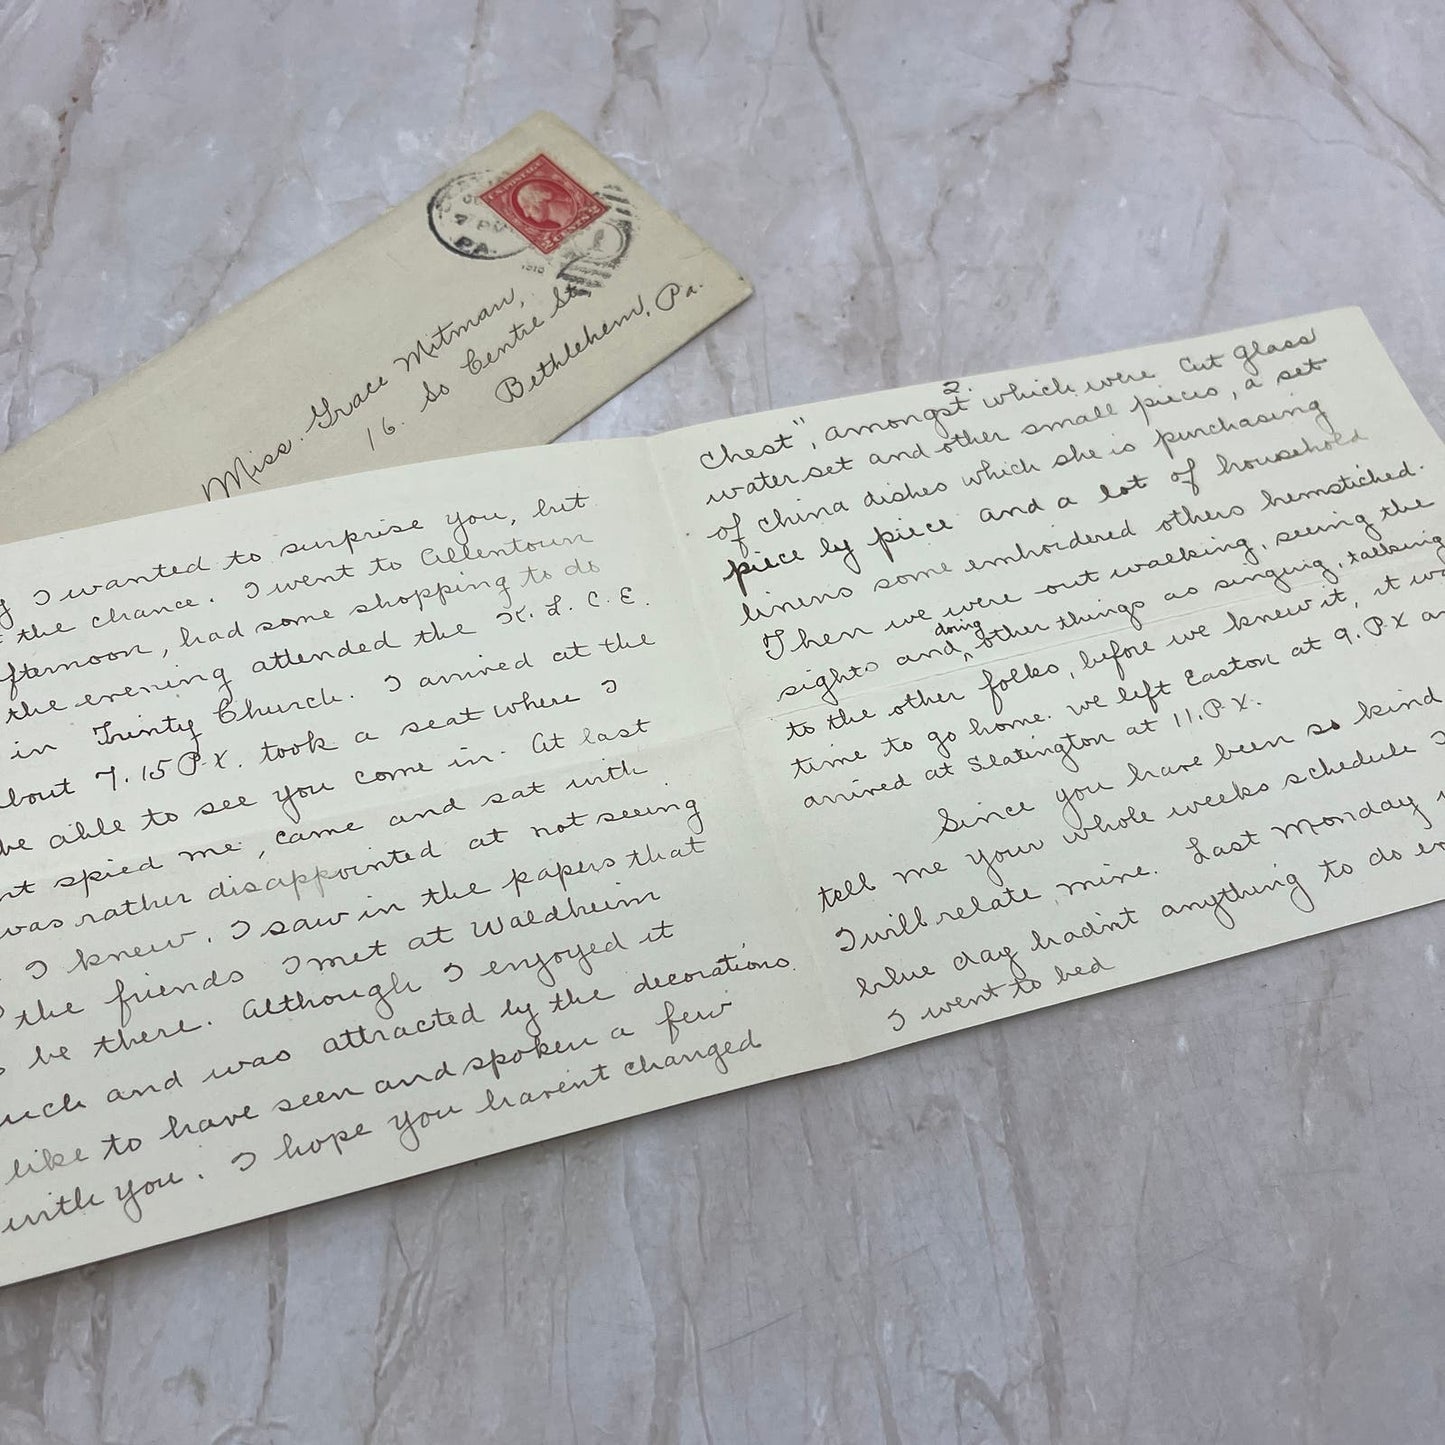 U.S. POSTAGE
2 CENTS 2
4 PM
PA.
1916
Miss. Grace Mitman,
16. So Centre St,
Bethlehem, Pa.
I wanted to surprise you, but
the chance. I went to Allentown
fternoon, had some shopping to do
the evening attended the K. L. C. E.
in Trinty Church. I arrived at the
bout 7.15 P.M. took a seat where I
be able to see you come in. At last
nt spied me, came and sat with
was rather disappointed at not seeing
I knew. I saw in the papers that
the friends I met at Waldheim
be there. Although I enjoyed it
uch and was attracted by the decorations.
like to have seen and spoken a few
with you. I hope you havent changed
2.
Chest", amongst which were Cut Glass
water set and other small pieces, a set
of China dishes which she is purchasing
piece by piece and a lot of household
linens some emboidered others hemstiched.
Then we were out walking, seeing the
sights and doing other things as singing, talking
to the other folks, before we knew it, it wa
time to go home. We left Easton at 9. P.M an
arrived at Slatington at 11. P.M.
Since you have been so kind
tell me your whole weeks schedule I
I will relate mine. Last Monday
blue day hadn't anything to do
I went to bed